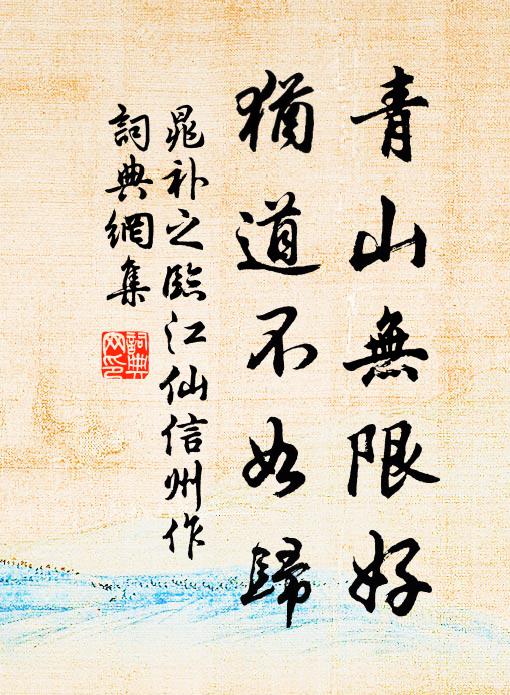 青山無限好
猶道不如歸
晁补之臨江仙信州作
詞典網集
詞典
网印